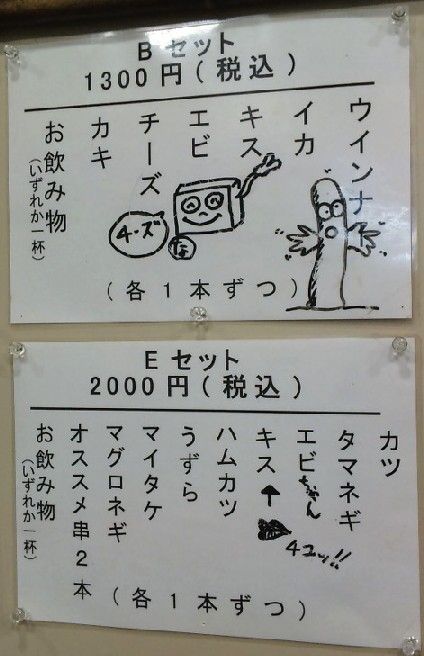 Bセット
1300円(税込)
ウインナ
イカ
キス
エビ
チーズ
カキ
お飲み物
(いずれか一杯)
チーズ
な
(各1本ずつ)
Eセット
2000円(税込)
カツ
タマネギ
エビちゃん
キス↑
チュッ!!
ハムカツ
うずら
マイタケ
マグロネギ
オススメ串2本
お飲み物
(いずれか一杯)
(各1本ずつ)